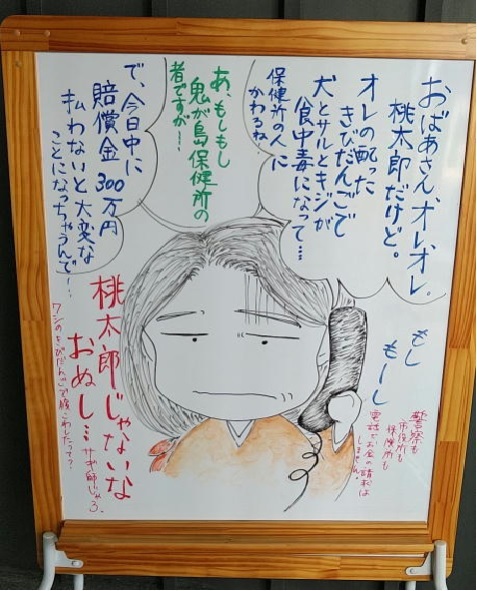 おばあさん、オレ、オレ。
桃太郎だけど。
オレの配った
きびだんごで
犬とサルとキジが
食中毒になって…
保健所の人に
かわるね。
あ、もしもし
鬼が島保健所の
者ですが…、
で、今日中に
賠償金300万円
払わないと大変な
ことになっちゃうんで…、
もし
もーし
桃太郎じゃないな
おぬし…
サギ師じゃろ。
ワシのきびだんごで腹こわしたって?
警察も
市役所も
保健所も
電話でお金の請求は
しません。